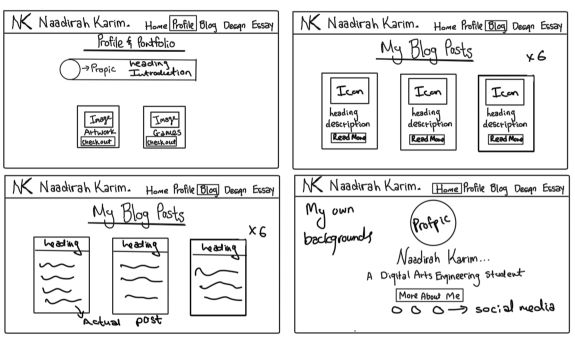 NK Naadirah Karim. Home Profile Blog Design Essay
Profile & Portfolio
→ Propic heading
Introduction
Image Image
Artwork Games
Checkout Checkout
NK Naadirah Karim. Home Profile Blog Design Essay
My Blog Posts
x6
Icon Icon Icon
heading heading heading
description description description
Read More Read More Read More
NK Naadirah Karim. Home Profile Blog Design Essay
My Blog Posts
x6
heading heading heading
Actual post
NK Naadirah Karim. Home Profile Blog Design Essay
My own
backgrounds
Profpic
Naadirah Karim...
A Digital Arts Engineering Student
More About Me
→ social media